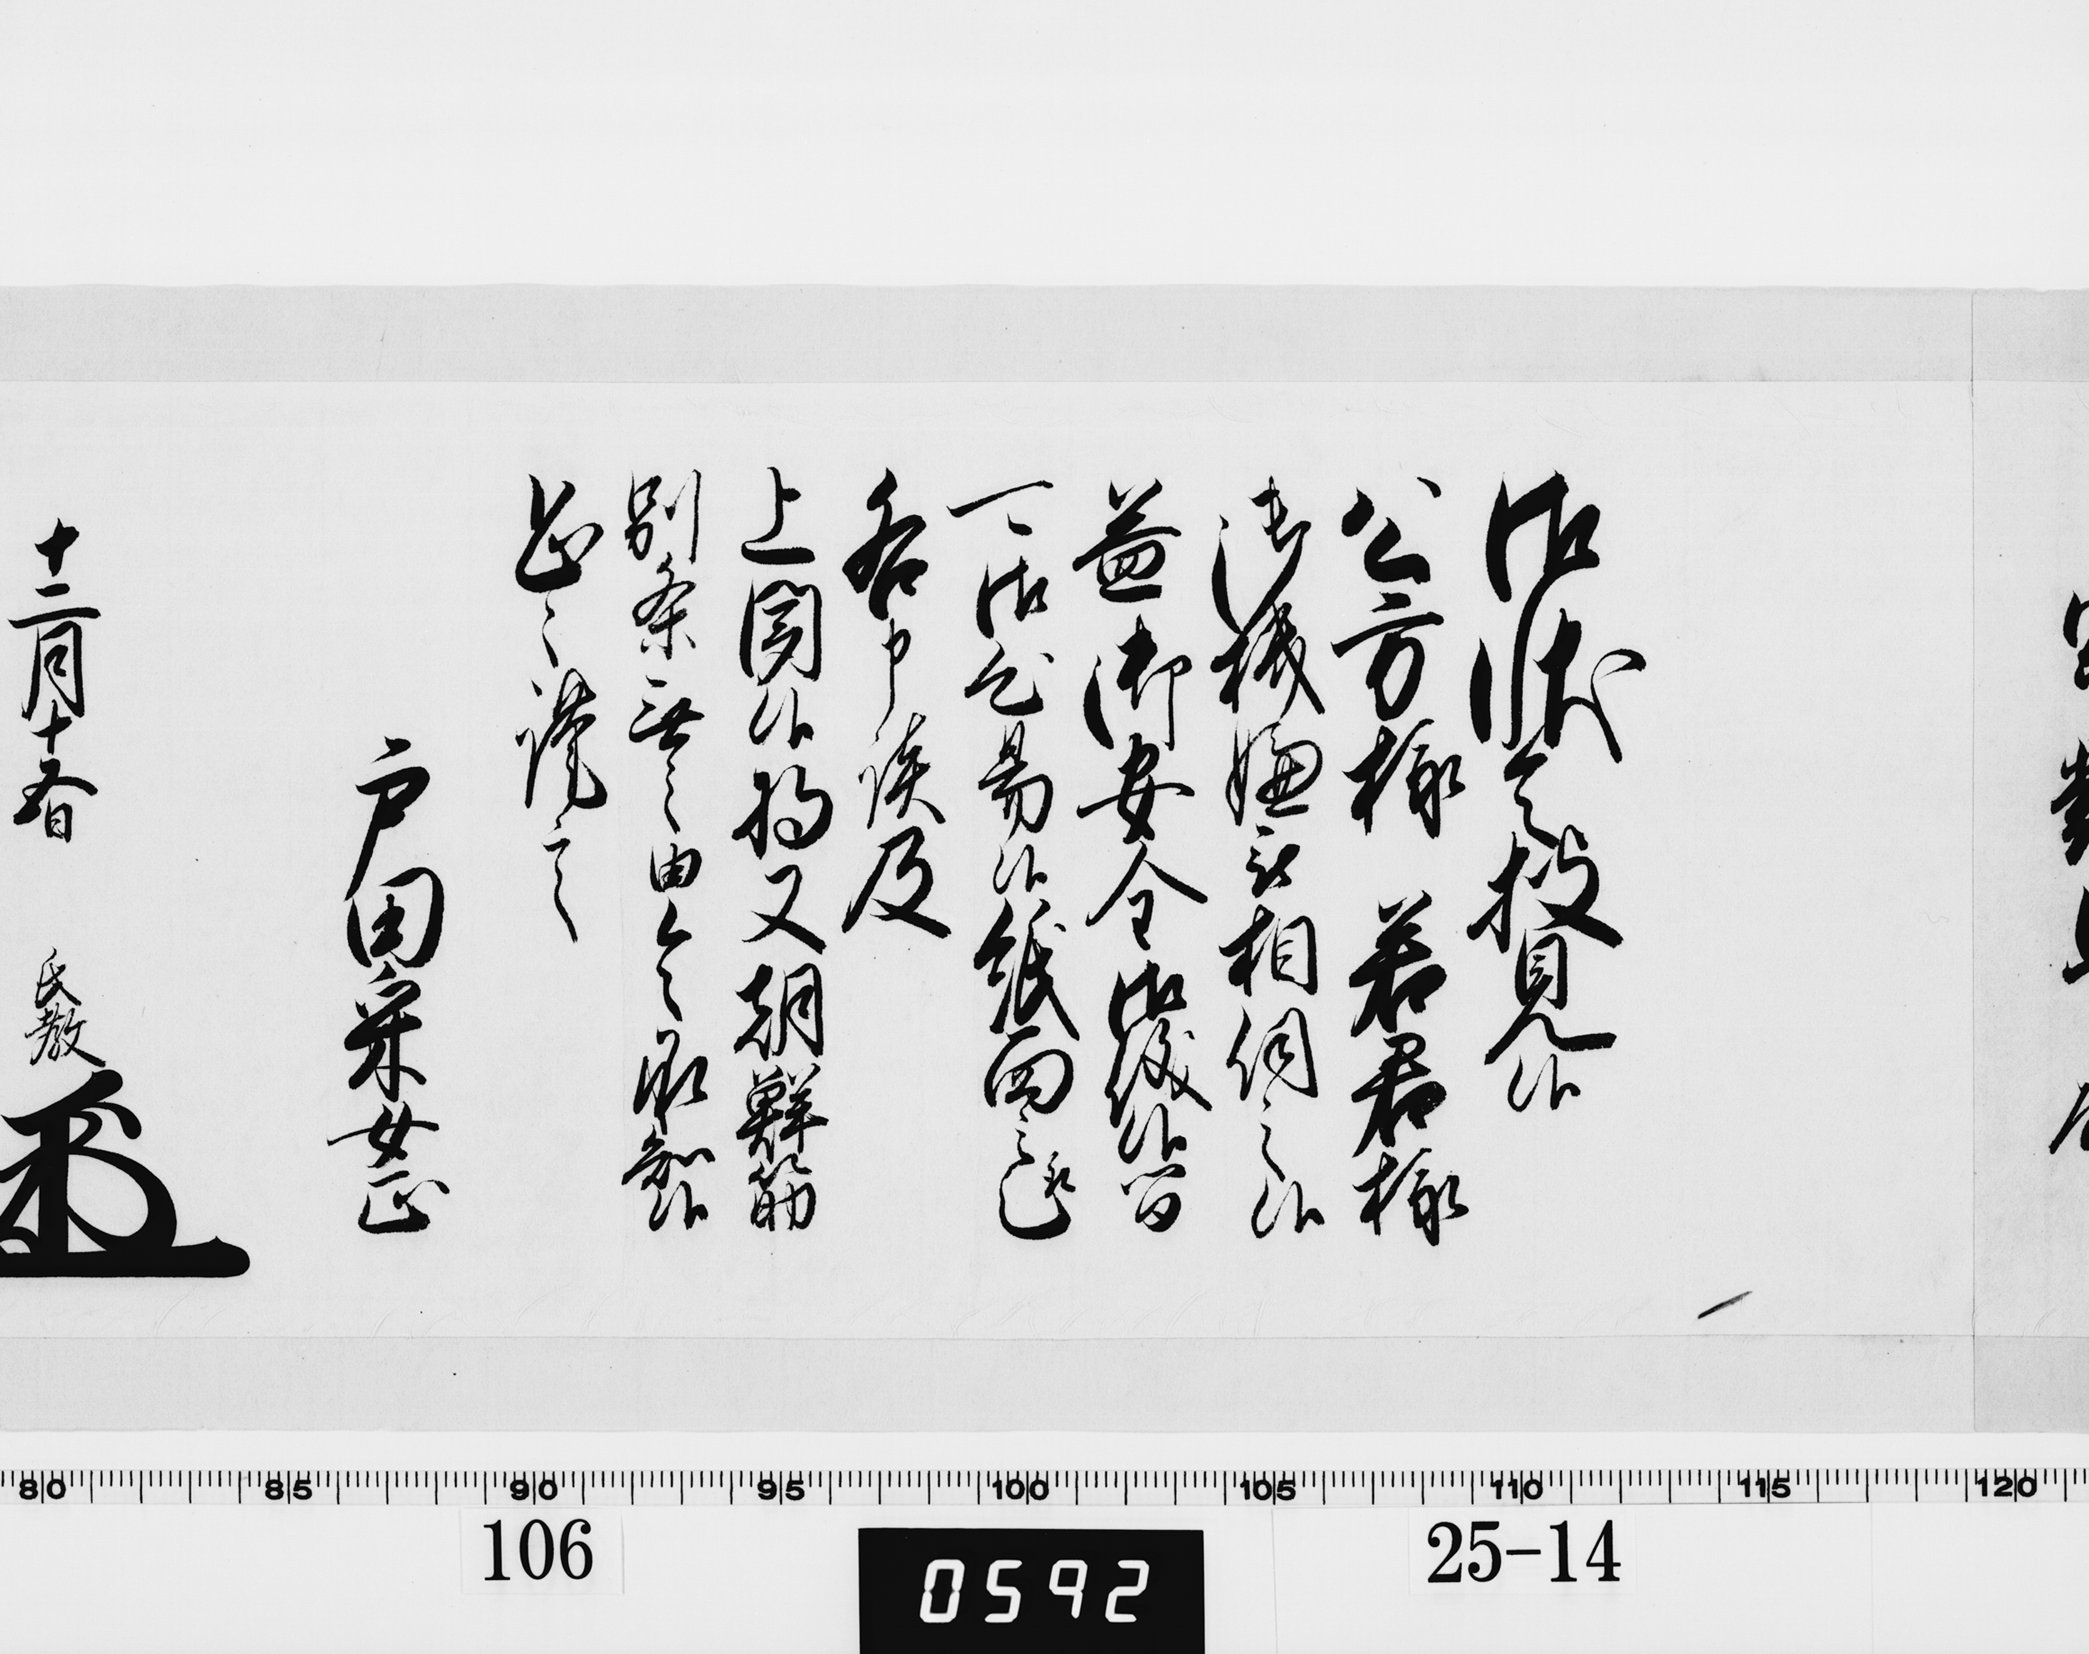 御状令披見候
公方様 若君様
御機嫌被相伺之候
益御安全御儀候間
可御心易候紙面之趣
各申談及
上聞候将又朝鮮筋
別条無之由令承知候
恐々謹言
戸田采女正
十二月十五日 氏教
80 85 90 95 100 105 110 115 120
106 0592 25-14